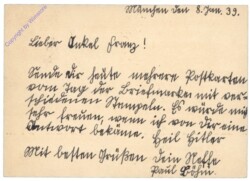 München den 8. Jan. 39.
Lieber Onkel Franz!
Sende dir heute mehrere Postkarten
vom Tag der Briefmarke mit ver-
schiedenen Stempeln. Es würde mich
sehr freuen, wenn ich von dir eine
Antwort bekäme.
Heil Hitler
Mit besten Grüßen dein Neffe
Paul Böhm.